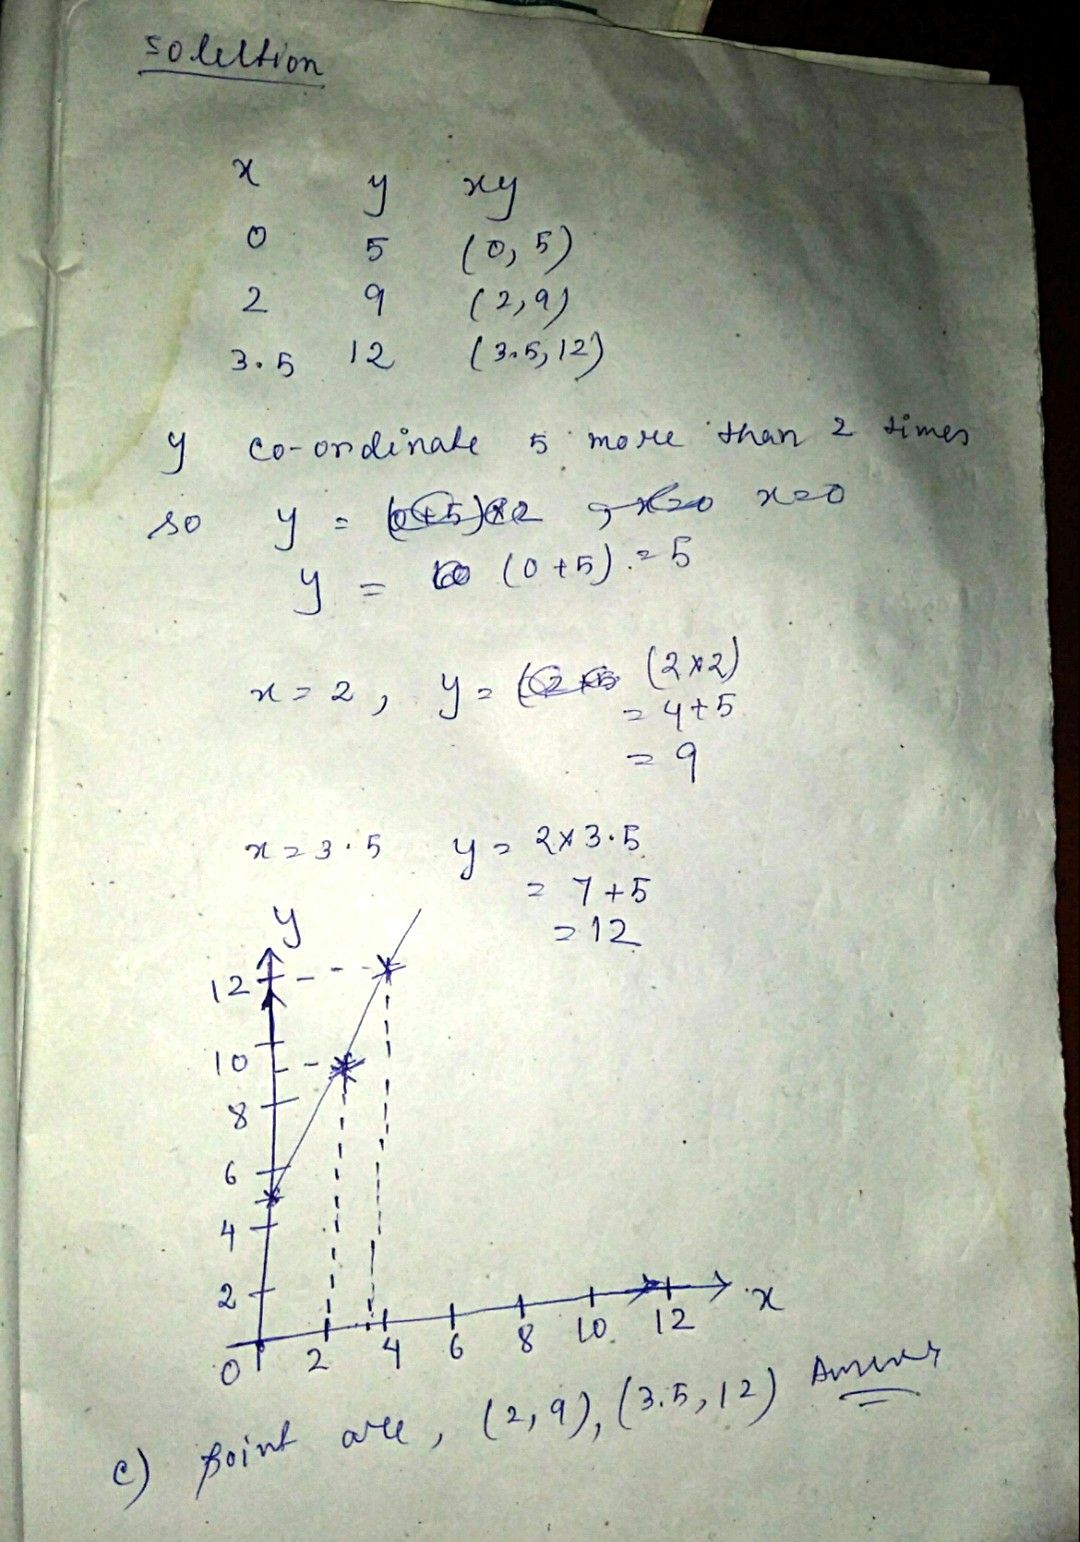 solution
x y xy
0 5 (0, 5)
2 9 (2, 9)
3.5 12 (3.5, 12)
y co-ordinate 5 more than 2 times
so y = x=0
y = (0+5) = 5
x = 2, y = (2×2)
= 4+5
= 9
x = 3.5 y = 2×3.5
= 7+5
= 12
y
12
10
8
6
4
2
0 2 4 6 8 10 12 x
c) point are, (2, 9), (3.5, 12) Answer